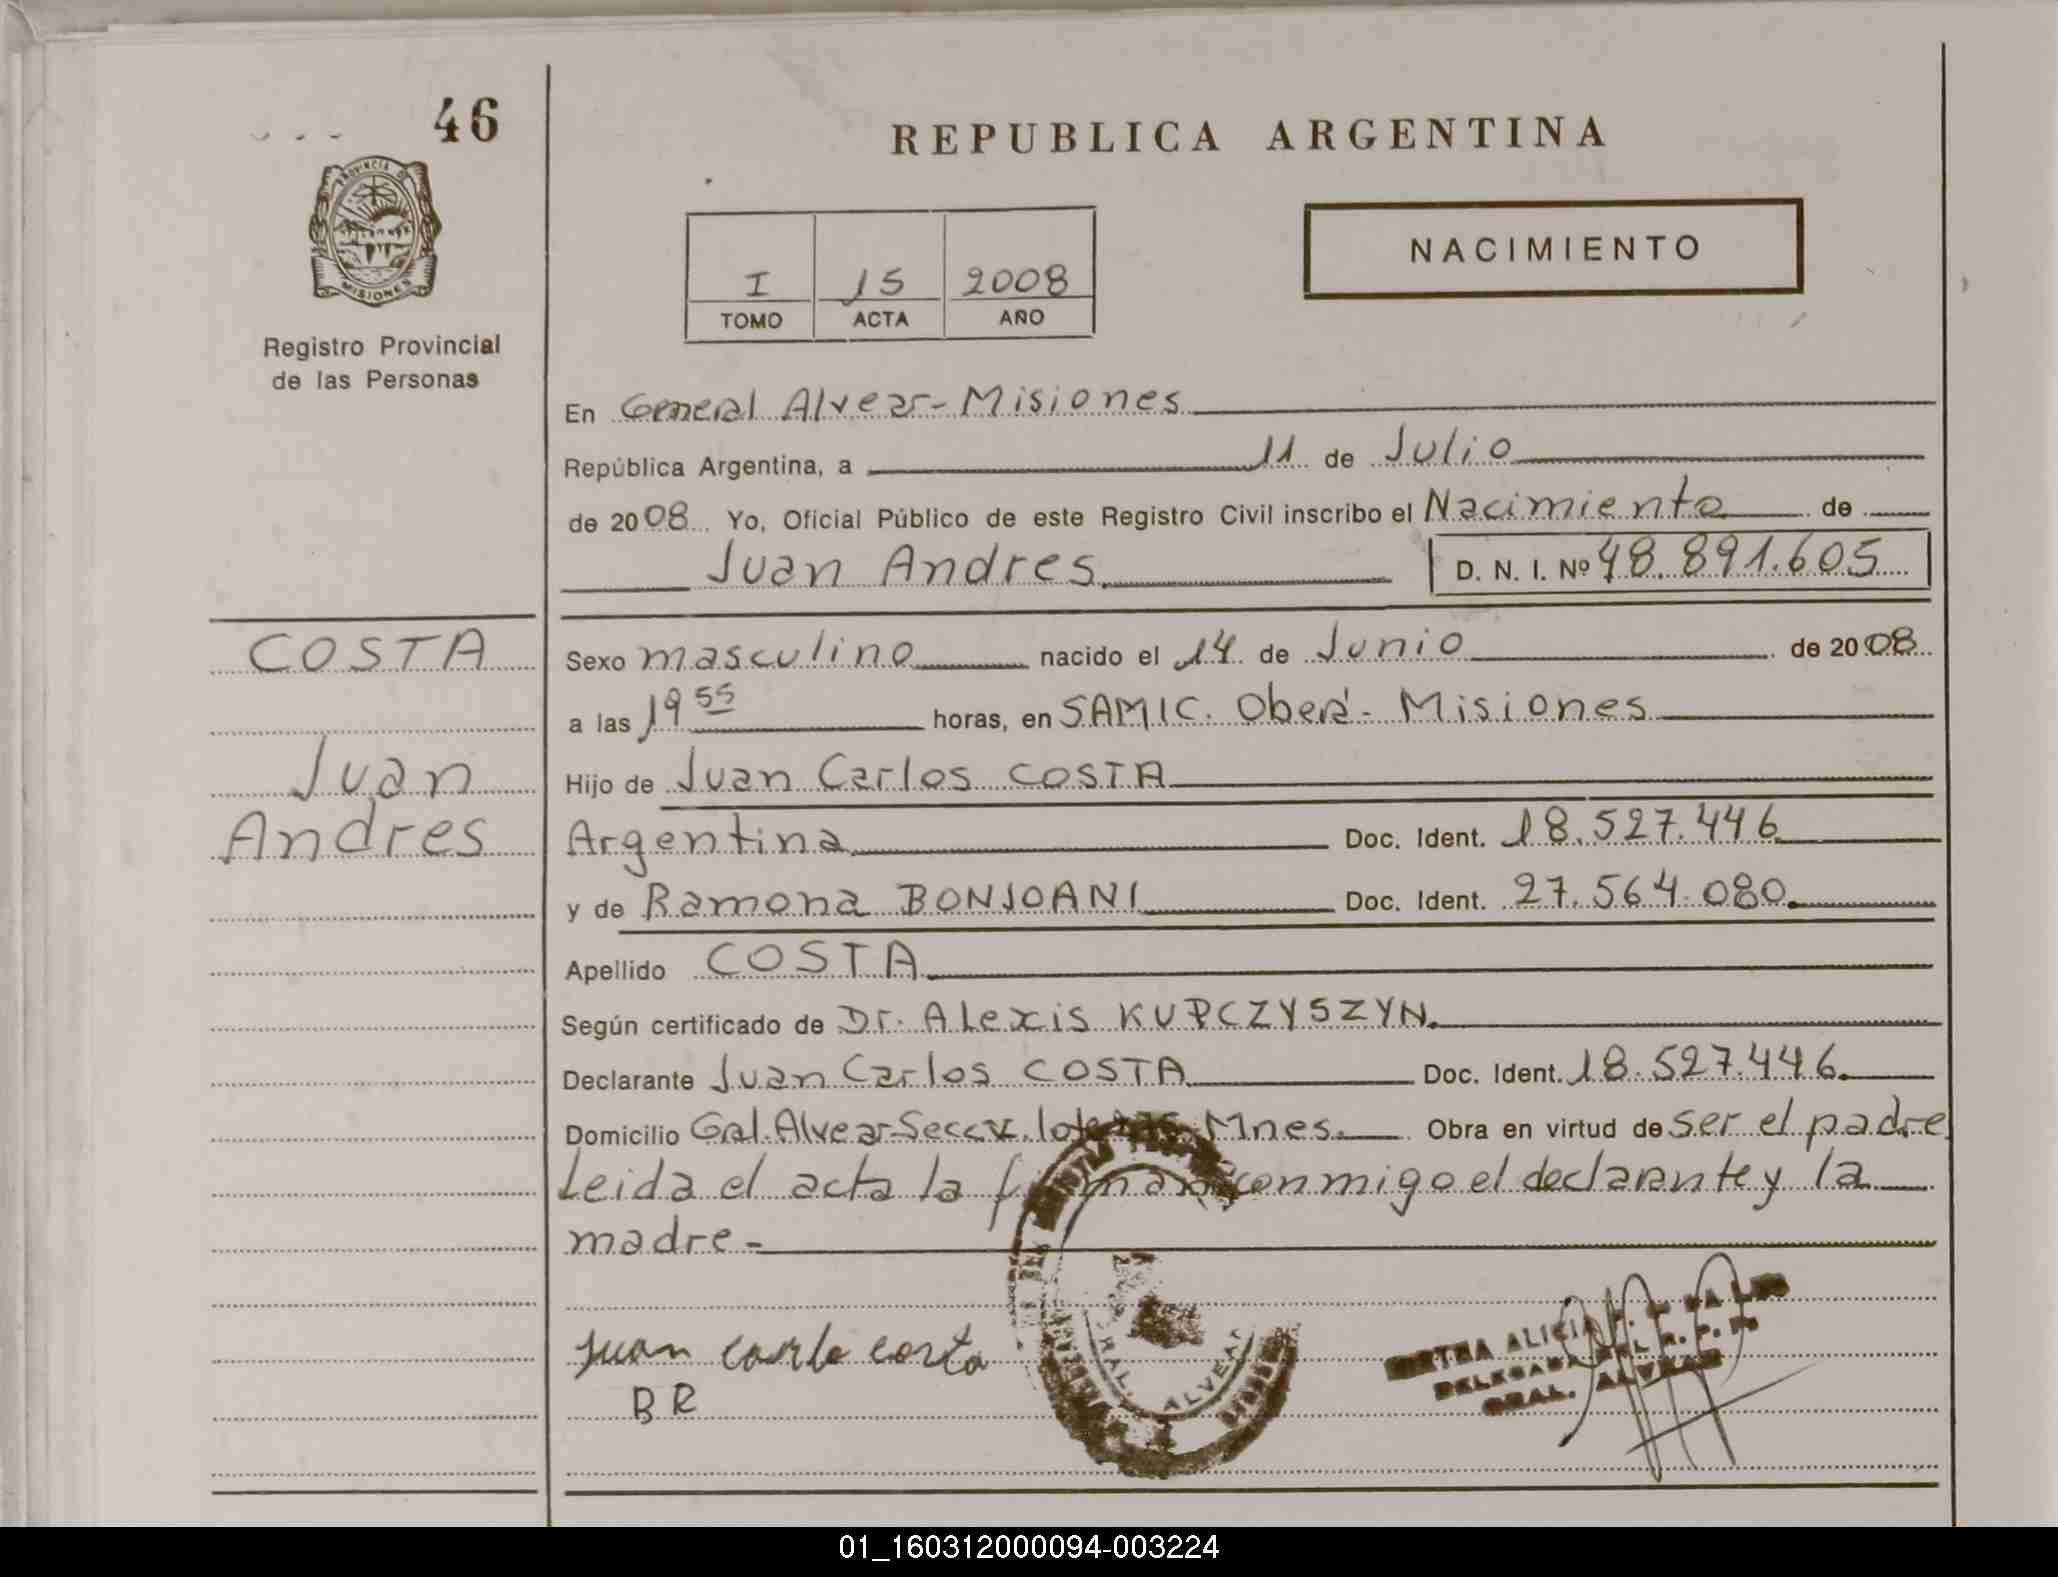 46
REPUBLICA ARGENTINA
PROVINCIA DE
MISIONES
Registro Provincial
de las Personas
I 15 2008
TOMO ACTA AÑO
NACIMIENTO
En General Alvear - Misiones
República Argentina, a 11 de Julio
de 2008 Yo, Oficial Público de este Registro Civil inscribo el Nacimiento de
Juan Andres D. N. I. Nº 48.891.605
COSTA
Juan
Andres
Sexo masculino nacido el 14 de Junio de 2008
a las 19 55 horas, en SAMIC. Oberá - Misiones
Hijo de Juan Carlos COSTA
Argentina Doc. Ident. 18.527.446
y de Ramona BONJOANI Doc. Ident. 27.564.080.
Apellido COSTA
Según certificado de Dr. Alexis KUPCZYSZYN.
Declarante Juan Carlos COSTA Doc. Ident. 18.527.446.
Domicilio Gral. Alvear Mnes. Obra en virtud de ser el padre
Leida el acta la conmigo el declarante y la
madre -
Juan Carlo Costa
B R
GRAL. ALVEAR
ALICIA
DELEGADA DEL R. P. P.
GRAL. ALVEAR
01_160312000094-003224